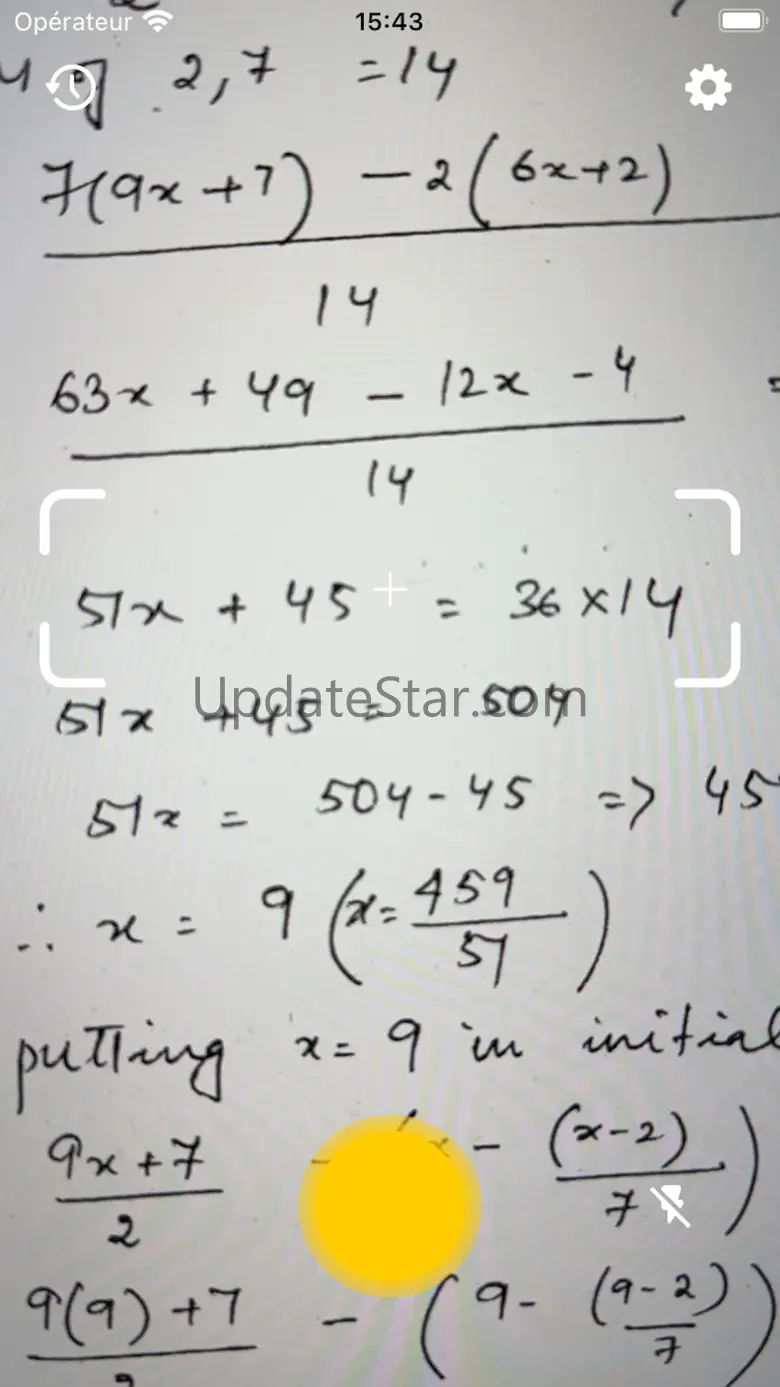 Opérateur 15:43
2, 7 = 14
7(9x + 7) - 2(6x+2)
14
63x + 49 - 12x - 4 =
14
51x + 45 = 36 x 14
51x + 45 = 504
UpdateStar.com
51x = 504 - 45 => 45
∴ x = 9 (x = 459
51)
putting x = 9 in initial
9x + 7 - x - (x-2)
2 7)
9(9) + 7 - (9 - (9-2)
7)